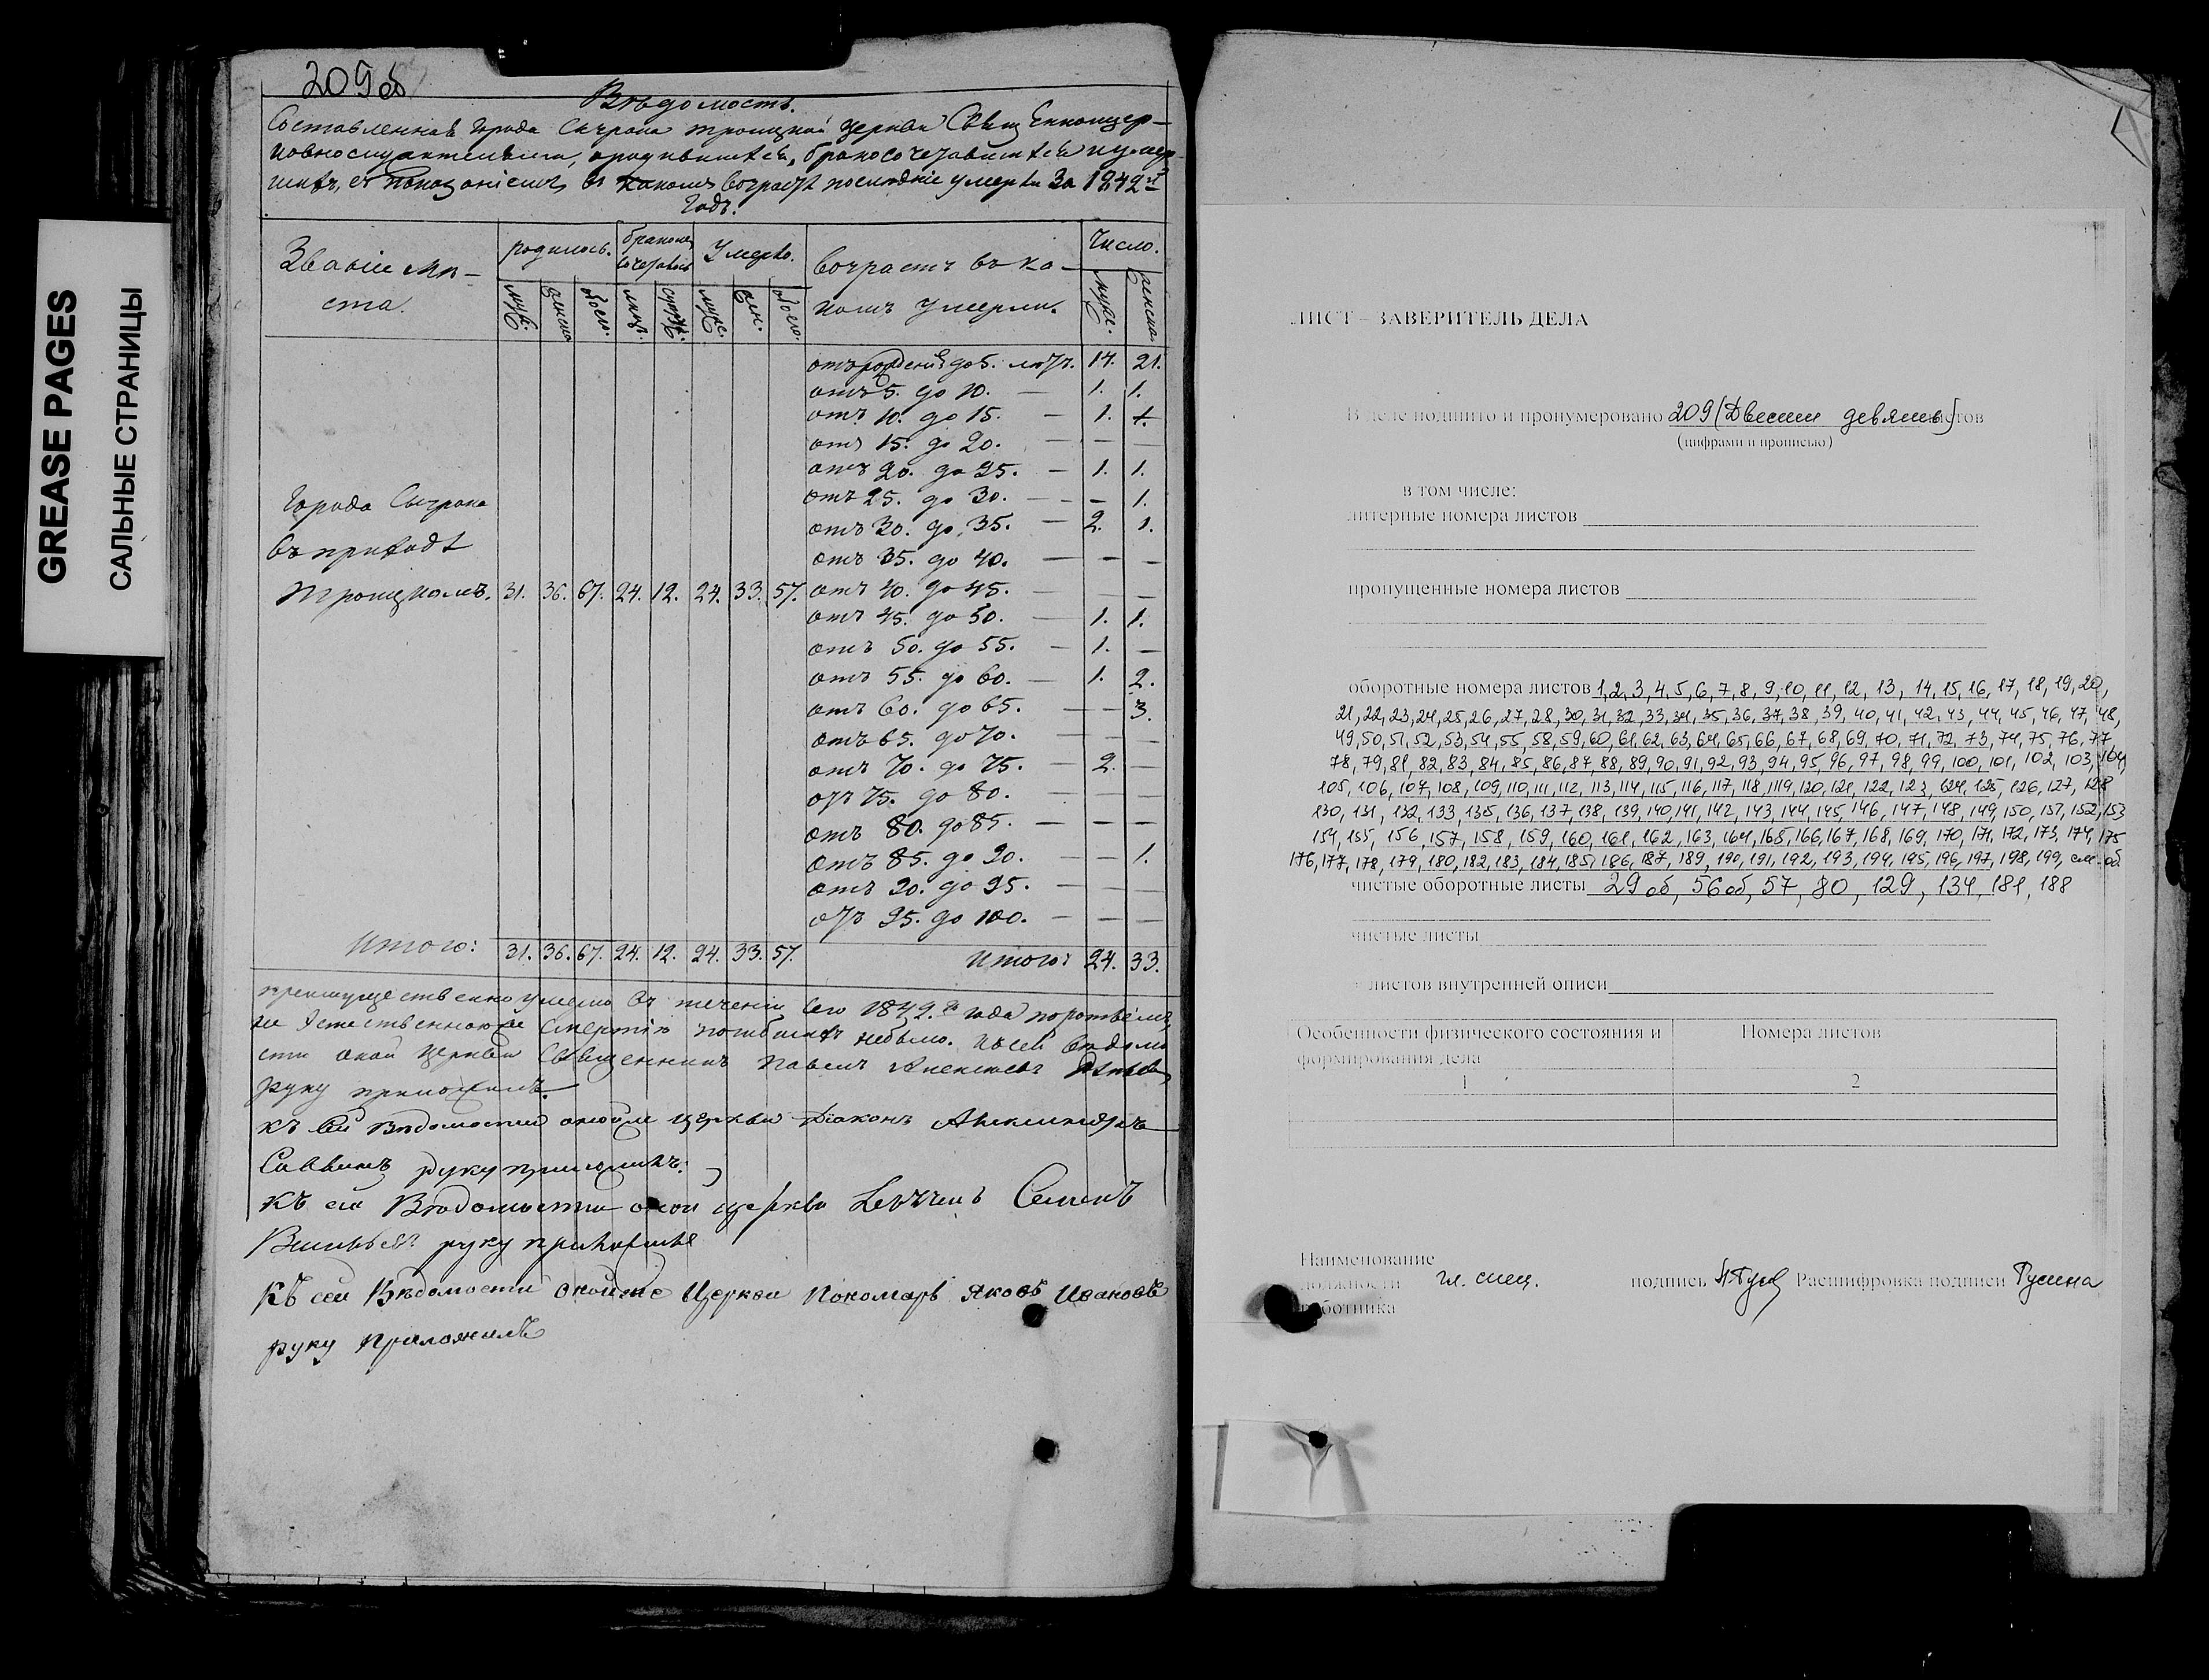 GREASE PAGES
САЛЬНЫЕ СТРАНИЦЫ
209об
Вѣдомость.
Составленная города Сызрана троицкой церкви Священноцер-
ковнослужителями, о родившихся, бракосочетавшихся и умер-
шихъ, съ показаніемъ въ какомъ возрастѣ послѣдніе умерли За 1842й
Годъ.
Званіе мѣ-
ста.
родилось.
бракомъ сочеталось
Умерло.
возрастъ въ ка-
комъ умерли.
Число.
муж. женска обоего. лицъ. супруж. муж. жен. обоего. муж. женска
отъ рожденія до 5. лѣтъ. 14. 21.
отъ 5. до 10. — 1. 1.
отъ 10. до 15. — 1. 1.
отъ 15. до 20. — — —
отъ 20. до 25. — 1. 1.
отъ 25. до 30. — — 1.
отъ 30. до 35. — 2. 1.
отъ 35. до 40. — — —
Города Сызрана
въ приходѣ
троицкомъ. 31. 36. 67. 24. 12. 24. 33. 57. отъ 40. до 45. — — —
отъ 45. до 50. — 1. 1.
отъ 50. до 55. — 1. —
отъ 55. до 60. — 1. 2.
отъ 60. до 65. — — 3.
отъ 65. до 70. — — —
отъ 70. до 75. — 2. —
отъ 75. до 80. — — —
отъ 80. до 85. — — —
отъ 85. до 90. — — 1.
отъ 90. до 95. — — —
отъ 95. до 100. — — —
Итого: 31. 36. 67. 24. 12. 24. 33. 57. Итого: 24. 33.
преимущественно умерло въ теченіи сего 1842.го года
не естественною смертію погибшихъ небыло. къ сей вѣдомо
сти оной церкви Священникъ Павелъ Алексѣевъ
руку приложилъ.
къ сей вѣдомости оной же церкви Діаконъ Александръ
Саввинъ руку приложилъ:
къ сей Вѣдомости оной церкви Дьячекъ Семенъ
Васильевъ руку приложилъ
Къ сей Вѣдомости оной же Церкви Пономарь Яковъ Ивановъ
руку приложилъ
ЛИСТ – ЗАВЕРИТЕЛЬ ДЕЛА
В деле подшито и пронумеровано 209 (Двести девять) листов
(цифрами и прописью)
в том числе:
литерные номера листов
пропущенные номера листов
оборотные номера листов 1,2,3,4,5,6,7,8,9,10,11,12,13,14,15,16,17,18,19,20,
21,22,23,24,25,26,27,28,30,31,32,33,34,35,36,37,38,39,40,41,42,43,44,45,46,47,48,
49,50,51,52,53,54,55,58,59,60,61,62,63,64,65,66,67,68,69,70,71,72,73,74,75,76,77
78,79,81,82,83,84,85,86,87,88,89,90,91,92,93,94,95,96,97,98,99,100,101,102,103,104,
105,106,107,108,109,110,111,112,113,114,115,116,117,118,119,120,121,122,123,124,125,126,127,128
130,131,132,133,135,136,137,138,139,140,141,142,143,144,145,146,147,148,149,150,151,152,153
154,155,156,157,158,159,160,161,162,163,164,165,166,167,168,169,170,171,172,173,174,175
176,177,178,179,180,182,183,184,185,186,187,189,190,191,192,193,194,195,196,197,198,199, см. об
чистые оборотные листы 29об, 56об, 57, 80, 129, 134, 181, 188
чистые листы
+ листов внутренней описи
Особенности физического состояния и формирования дела
Номера листов
1 2
Наименование
должности гл. спец. подпись Расшифровка подписи Гусина
работника